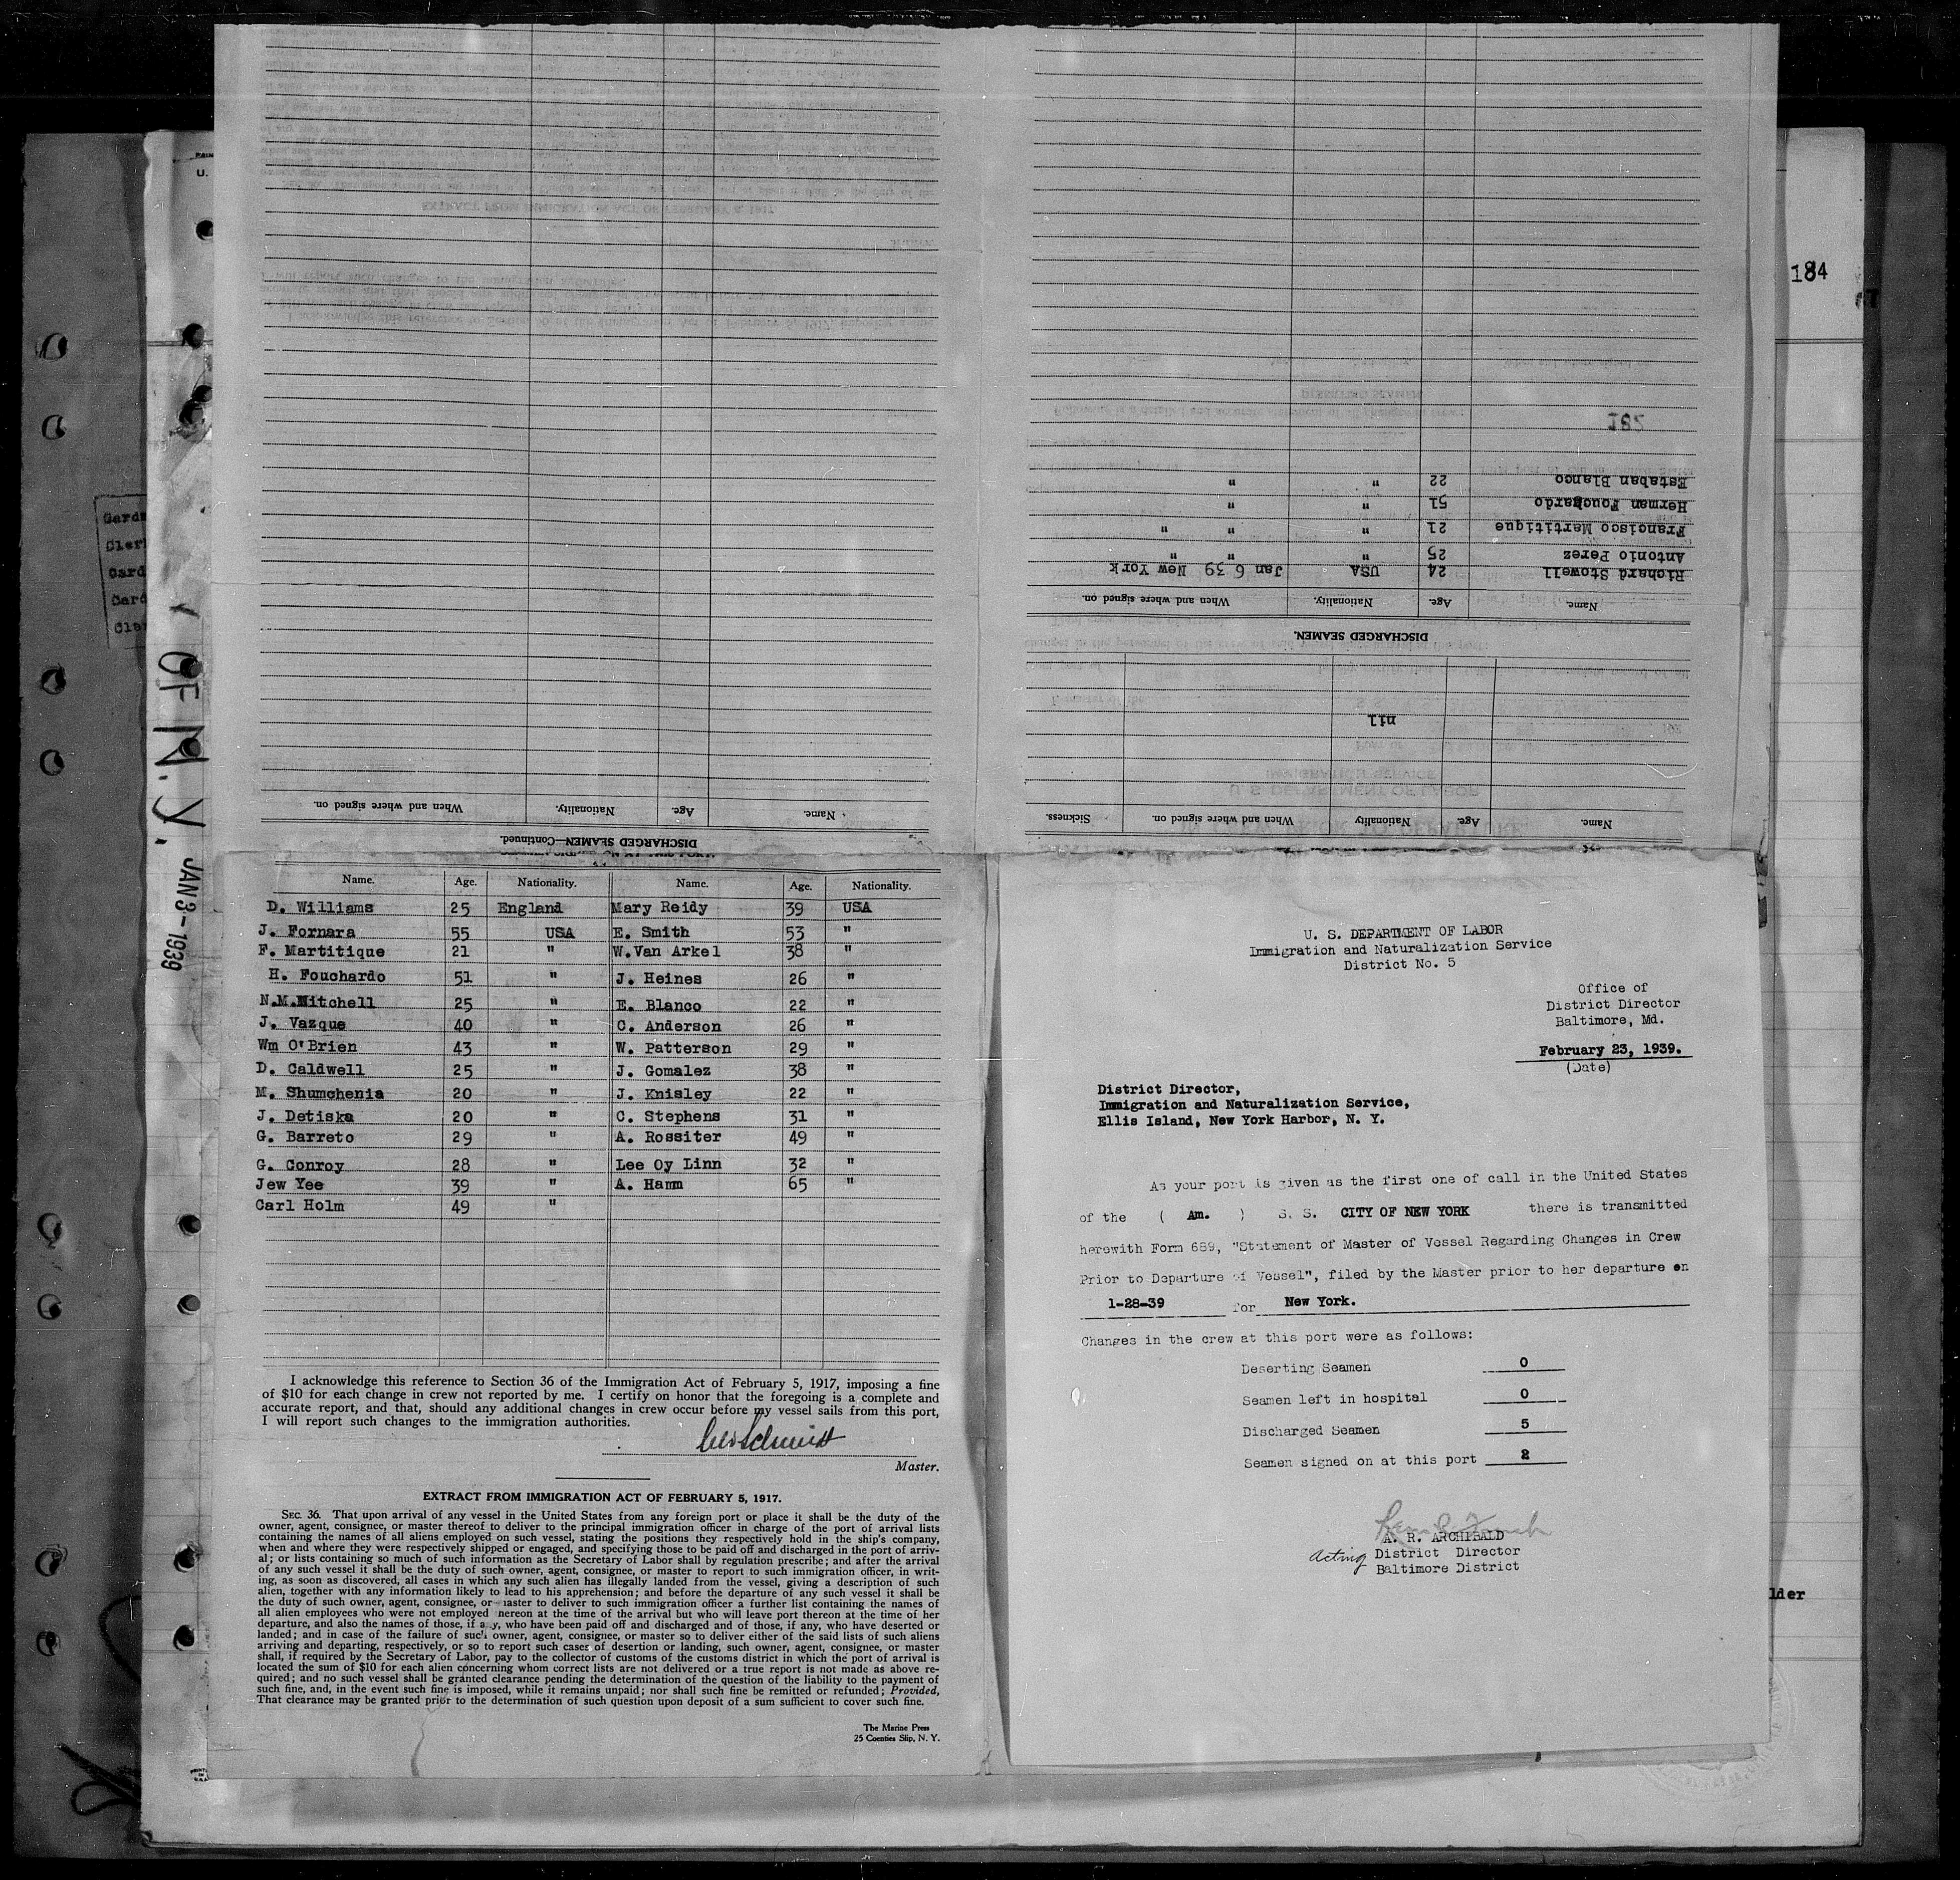 184
182
Estaban Blanco 22 " "
Herman Fouchardo 51 " "
Francisco Martitique 21 " " "
Antonio Perez 25 " " "
Richard Stowell 24 USA Jan 6 39 New York
Name. Age. Nationality. When and where signed on.
DISCHARGED SEAMEN.
nil
Name. Age. Nationality When and where signed on. Sickness.
Name. Age. Nationality. When and where signed on.
DISCHARGED SEAMEN—Continued.
OF N.Y. JAN 3-1939
Name. Age. Nationality. Name. Age. Nationality.
D. Williams 25 England Mary Reidy 39 USA
J. Fornara 55 USA E. Smith 53 "
F. Martitique 21 " W.Van Arkel 38 "
H. Fouchardo 51 " J. Heines 26 "
N.M.Mitchell 25 " E. Blanco 22 "
J. Vazque 40 " C. Anderson 26 "
Wm O'Brien 43 " W. Patterson 29 "
D. Caldwell 25 " J. Gomalez 38 "
M. Shumchenia 20 " J. Knisley 22 "
J. Detiska 20 " C. Stephens 31 "
G. Barreto 29 " A. Rossiter 49 "
G. Conroy 28 " Lee Oy Linn 32 "
Jew Yee 39 " A. Hamm 65 "
Carl Holm 49 "
I acknowledge this reference to Section 36 of the Immigration Act of February 5, 1917, imposing a fine
of $10 for each change in crew not reported by me. I certify on honor that the foregoing is a complete and
accurate report, and that, should any additional changes in crew occur before my vessel sails from this port,
I will report such changes to the immigration authorities.
Master.
EXTRACT FROM IMMIGRATION ACT OF FEBRUARY 5, 1917.
SEC. 36. That upon arrival of any vessel in the United States from any foreign port or place it shall be the duty of the
owner, agent, consignee, or master thereof to deliver to the principal immigration officer in charge of the port of arrival lists
containing the names of all aliens employed on such vessel, stating the positions they respectively hold in the ship's company,
when and where they were respectively shipped or engaged, and specifying those to be paid off and discharged in the port of arriv-
al; or lists containing so much of such information as the Secretary of Labor shall by regulation prescribe; and after the arrival
of any such vessel it shall be the duty of such owner, agent, consignee, or master to report to such immigration officer, in writ-
ing, as soon as discovered, all cases in which any such alien has illegally landed from the vessel, giving a description of such
alien, together with any information likely to lead to his apprehension; and before the departure of any such vessel it shall be
the duty of such owner, agent, consignee, or master to deliver to such immigration officer a further list containing the names of
all alien employees who were not employed hereon at the time of the arrival but who will leave port thereon at the time of her
departure, and also the names of those, if any, who have been paid off and discharged and of those, if any, who have deserted or
landed; and in case of the failure of such owner, agent, consignee, or master so to deliver either of the said lists of such aliens
arriving and departing, respectively, or so to report such cases of desertion or landing, such owner, agent, consignee, or master
shall, if required by the Secretary of Labor, pay to the collector of customs of the customs district in which the port of arrival is
located the sum of $10 for each alien concerning whom correct lists are not delivered or a true report is not made as above re-
quired; and no such vessel shall be granted clearance pending the determination of the question of the liability to the payment of
such fine, and, in the event such fine is imposed, while it remains unpaid; nor shall such fine be remitted or refunded; Provided,
That clearance may be granted prior to the determination of such question upon deposit of a sum sufficient to cover such fine.
The Marine Press
25 Coenties Slip, N. Y.
U. S. DEPARTMENT OF LABOR
Immigration and Naturalization Service
District No. 5
Office of
District Director
Baltimore, Md.
February 23, 1939.
(Date)
District Director,
Immigration and Naturalization Service,
Ellis Island, New York Harbor, N. Y.
As your port is given as the first one of call in the United States
of the ( Am. ) S. S. CITY OF NEW YORK there is transmitted
herewith Form 689, "Statement of Master of Vessel Regarding Changes in Crew
Prior to Departure of Vessel", filed by the Master prior to her departure on
1-28-39 for New York.
Changes in the crew at this port were as follows:
Deserting Seamen 0
Seamen left in hospital 0
Discharged Seamen 5
Seamen signed on at this port 2
A. R. ARCHIBALD
Acting District Director
Baltimore District
lder